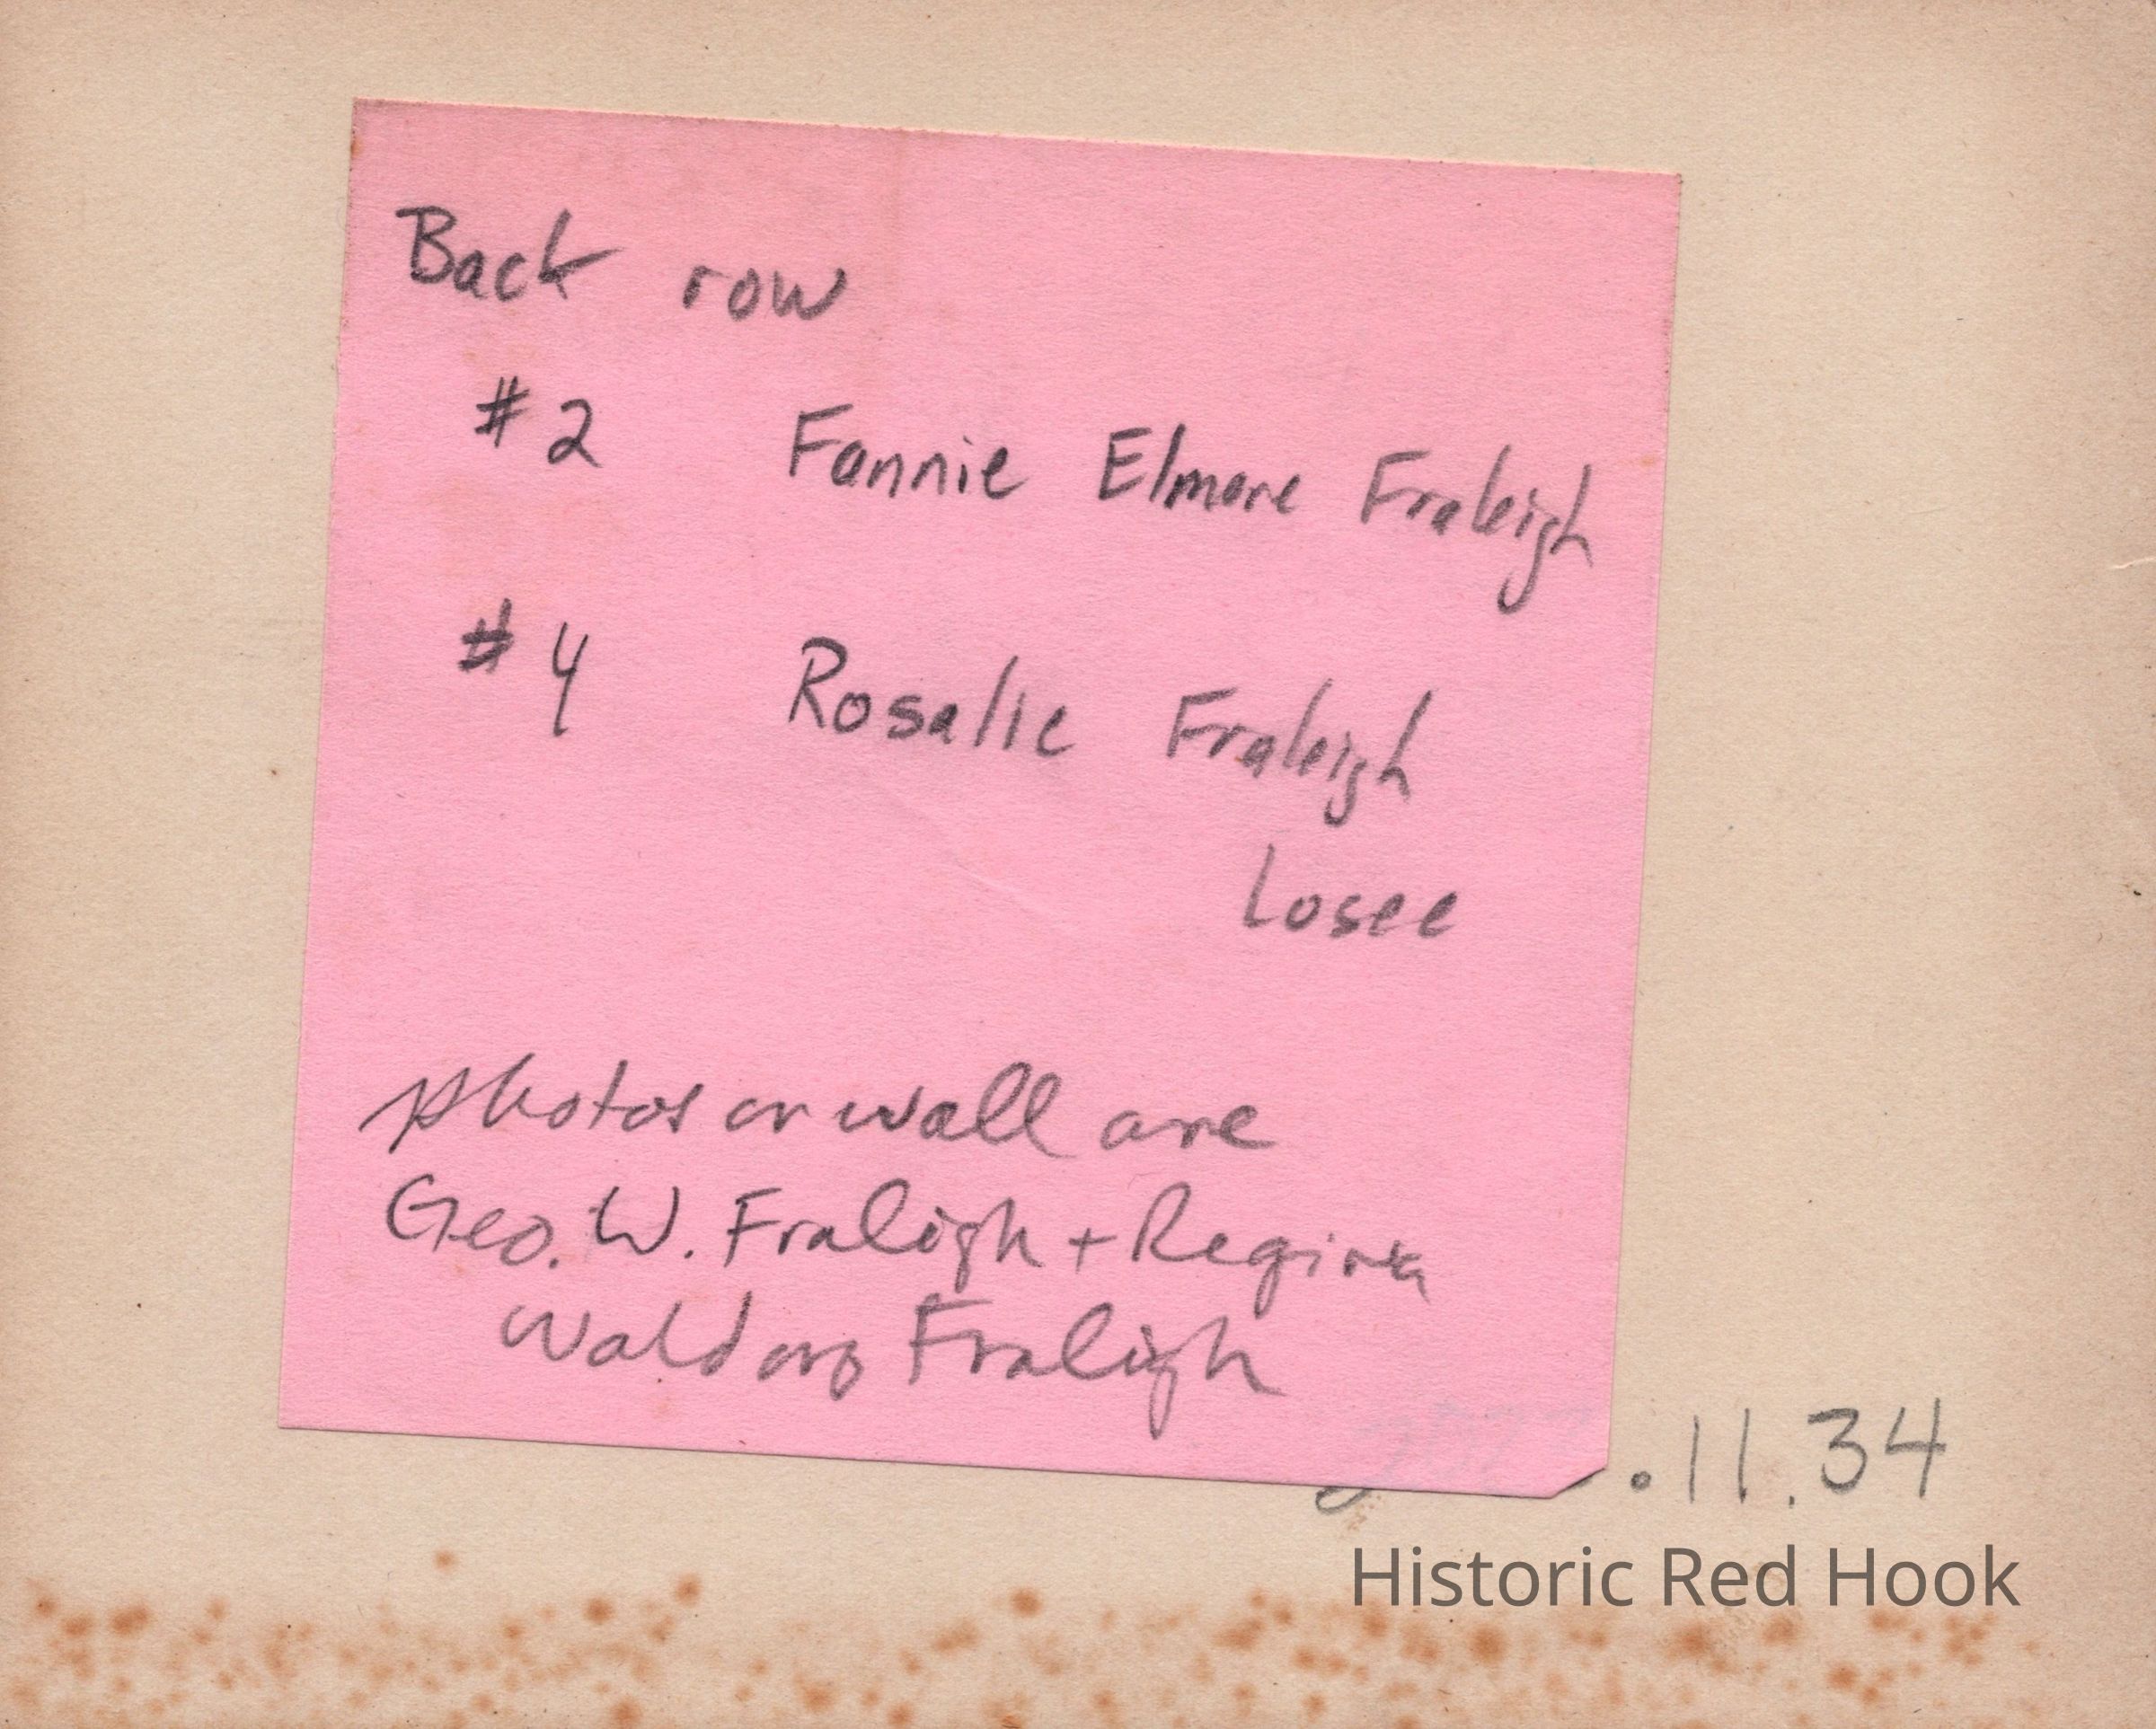 Back row
#2 Fannie Elmore Fraleigh
#4 Rosalie Fraleigh
Losee
photos on wall are
Geo. W. Fraleigh + Regina
Waldorf Fraleigh
.11.34
Historic Red Hook